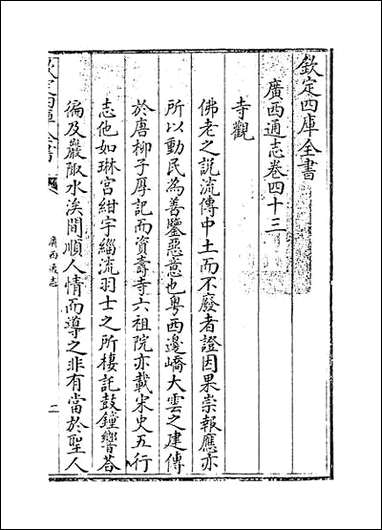 欽定四庫全書
廣西通志卷四十三
寺觀
佛老之説流傳中土而不廢者證因果崇報應亦
所以動民為善鑒惡意也粤西邊嶠大雲之建傳
於唐柳子厚記而資壽寺六祖院亦載宋史五行
志他如琳宫紺宇緇流羽士之所棲託鼓鐘響荅
徧及巖陬水溪間順人情而導之非有當於聖人
欽定四庫全書
廣西通志